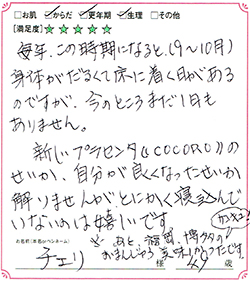 □お肌 ☑からだ ☑更年期 ☑生理 □その他
[満足度]★★★★★
毎年、この時期になると(9〜10月)
身体がだるくて床に着く日がある
のですが、今のところまだ1日も
ありません。
新しいプラセンタ《COCORO》の
せいか、自分が良くなったせいか
解りませんがとにかく寝込んで
いないのは嬉しいです
お名前(本名orペンネーム)
チェリ 様 49 歳
あと、福岡、博多の
おまんじゅう美味しかったです。